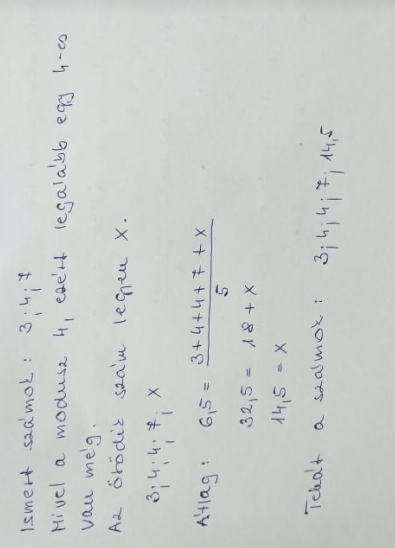 Ismert számok : 3 ; 4 ; 7
Mivel a modusz 4, ezért legalább egy 4-es
van még.
Az ötödik szám legyen x.
3 ; 4 ; 4 ; 7 ; x
Átlag : 6,5 = 3+4+4+7+x / 5
32,5 = 18 + x
14,5 = x
Tehát a számok : 3 ; 4 ; 4 ; 7 ; 14,5